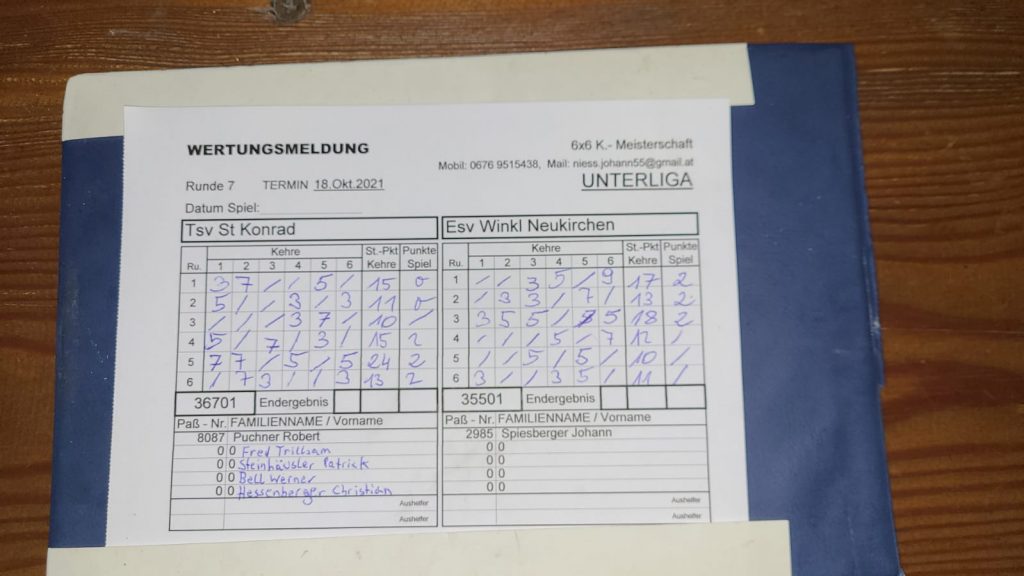 WERTUNGSMELDUNG
6x6 K.- Meisterschaft
Mobil: 0676 9515438, Mail: niess.johann55@gmail.at
Runde 7 TERMIN 18.Okt.2021 UNTERLIGA
Datum Spiel:
Tsv St Konrad Esv Winkl Neukirchen
Kehre St.-Pkt Punkte Kehre St.-Pkt Punkte
Ru. 1 2 3 4 5 6 Kehre Spiel Ru. 1 2 3 4 5 6 Kehre Spiel
1 3 7 / / 5 / 15 0 1 / / 3 5 / 9 17 2
2 5 / / 3 / 3 11 0 2 / 3 3 / 7 / 13 2
3 / / / 3 7 / 10 / 3 3 5 5 / 5 18 2
4 5 / 7 / 3 / 15 2 4 / / / 5 / 7 12 /
5 7 7 / 5 / 5 24 2 5 / / 5 / 5 / 10 /
6 / 7 3 / / 3 13 2 6 3 / / 3 5 / 11 /
36701 Endergebnis 35501 Endergebnis
Paß - Nr. FAMILIENNAME / Vorname Paß - Nr. FAMILIENNAME / Vorname
8087 Puchner Robert 2985 Spiesberger Johann
0 0 Fred Trillsam 0 0
0 0 Steinhäusler Patrick 0 0
0 0 Bell Werner 0 0
0 0 Hessenberger Christian 0 0
Aushelfer Aushelfer
Aushelfer Aushelfer